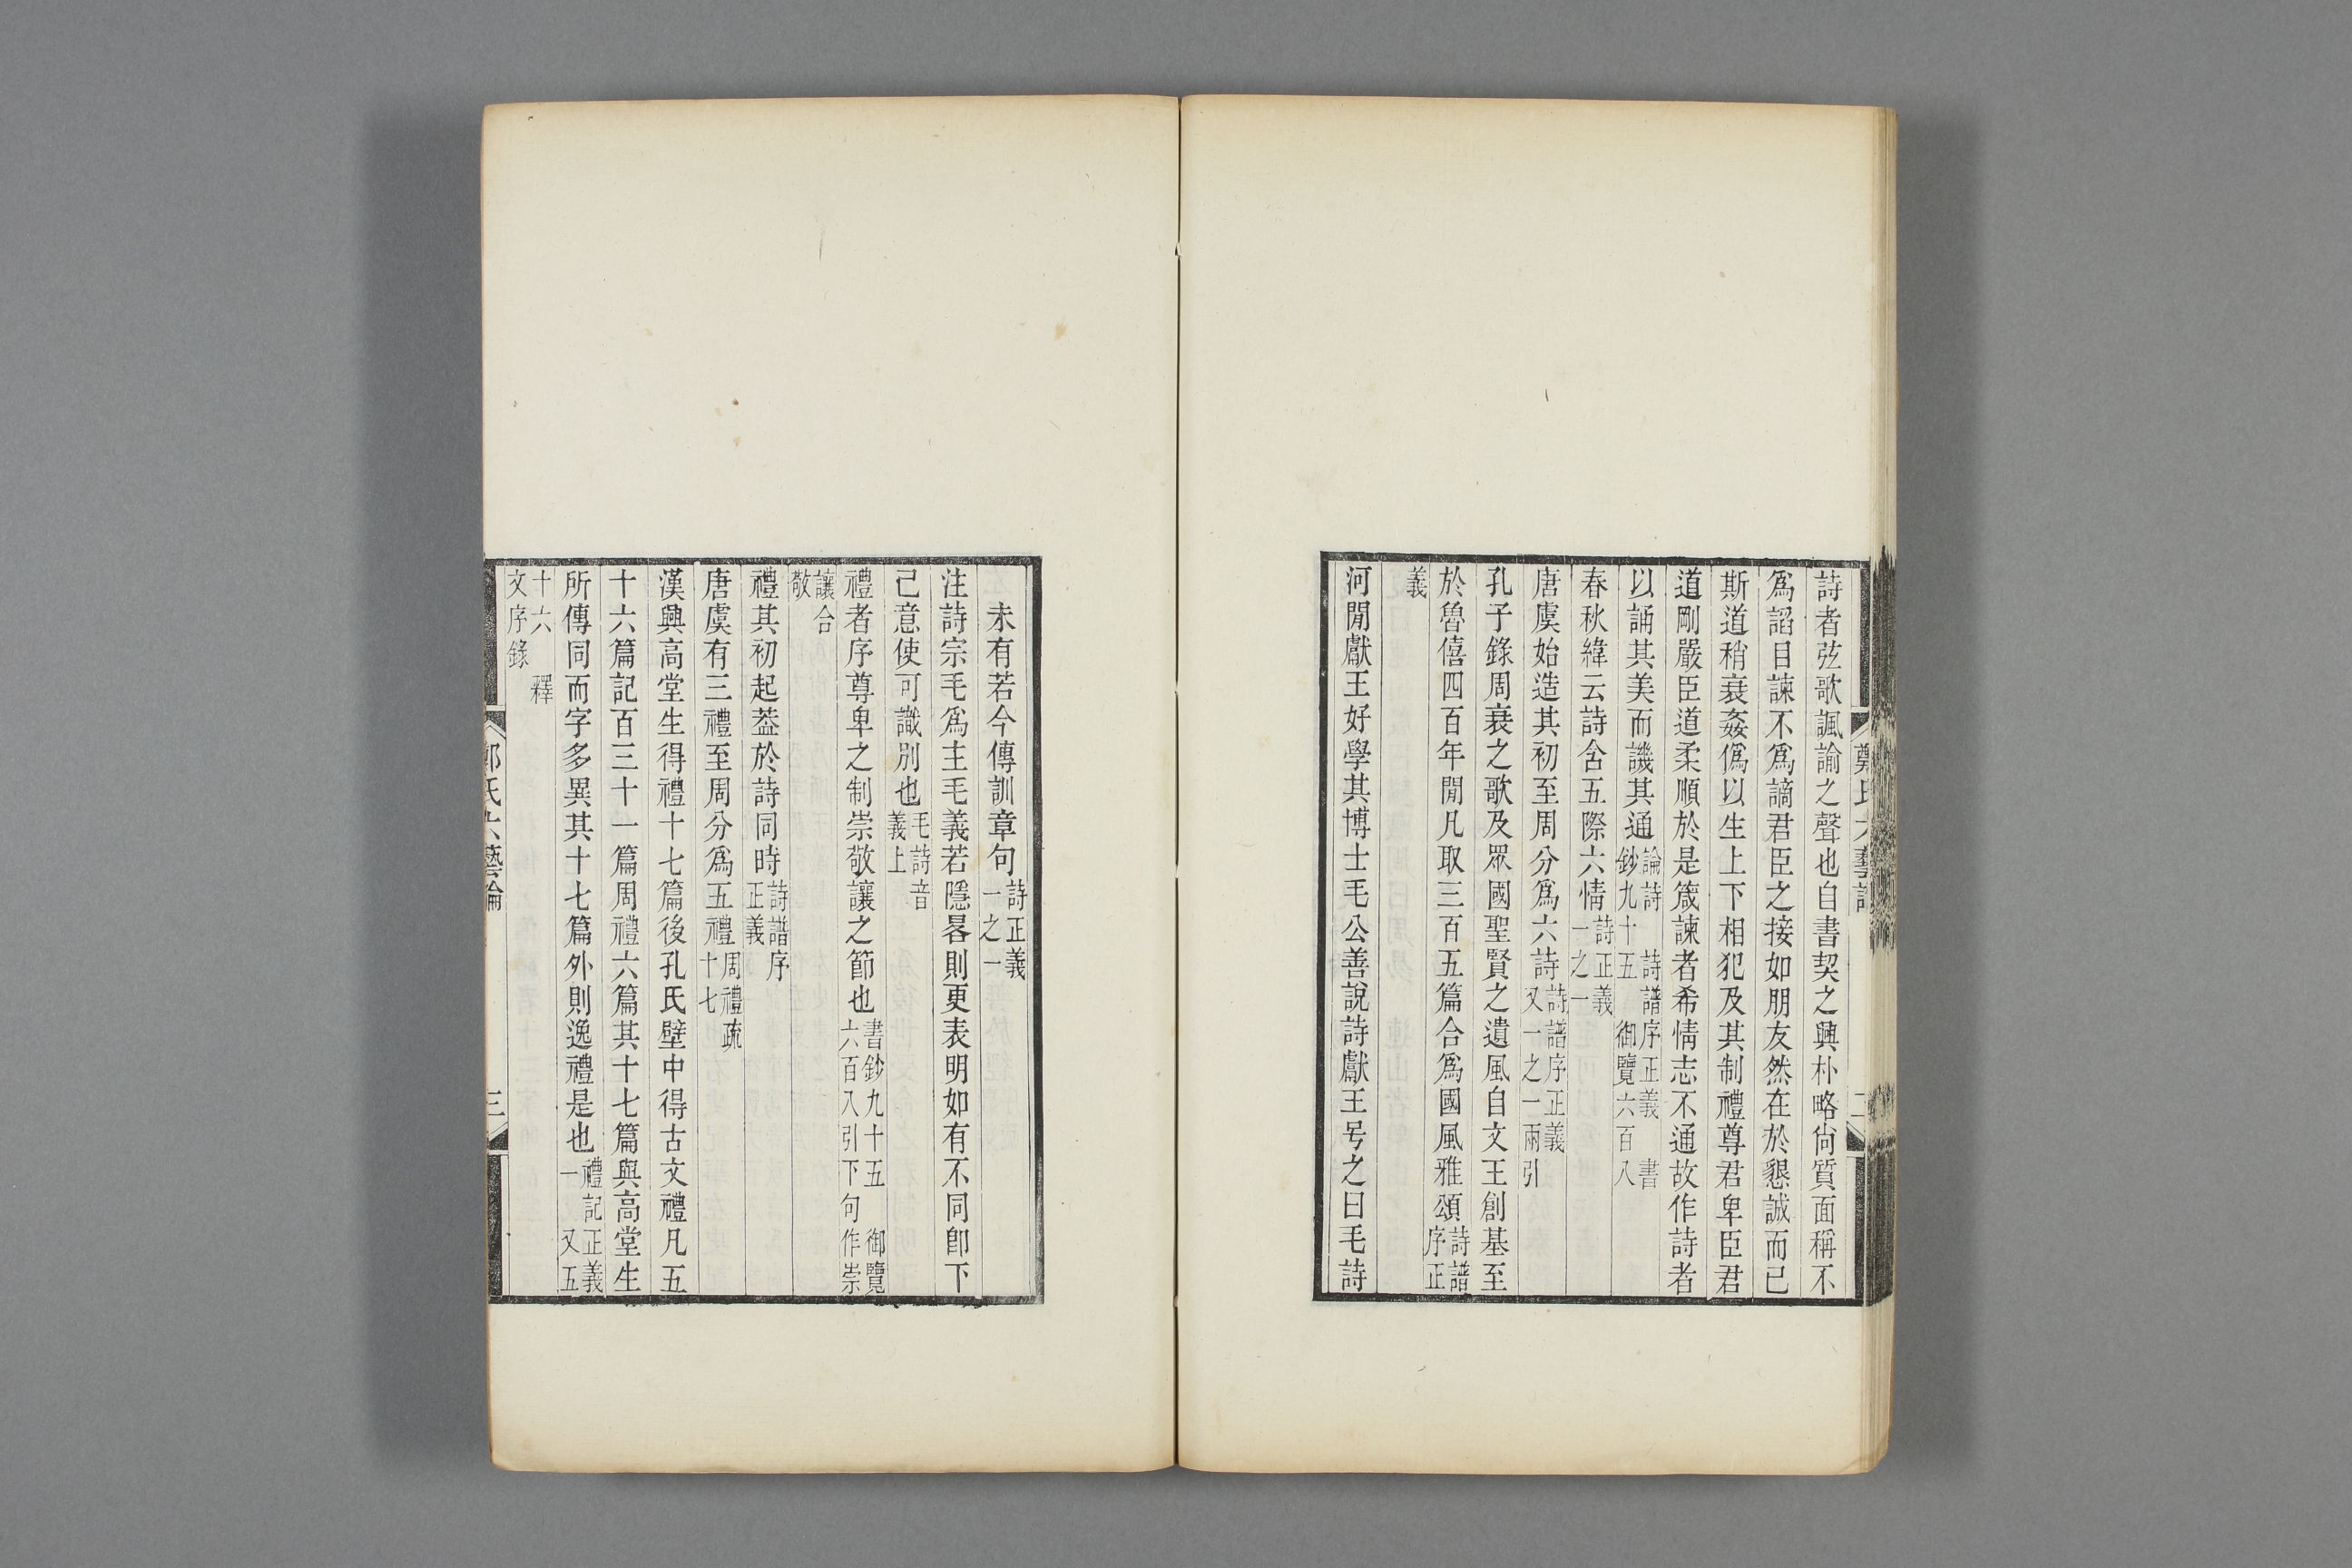 詩者弦歌諷諭之聲也自書契之興朴略尙質面稱不
爲諂目諫不爲謫君臣之接如朋友然在於懇誠而已
斯道稍衰姦僞以生上下相犯及其制禮尊君卑臣君
道剛嚴臣道柔順於是箴諫者希情志不通故作詩者
以誦其美而譏其過論詩 詩譜序正義 書鈔九十五 御覽六百八
春秋緯云詩含五際六情詩正義一之一
唐虞始造其初至周分爲六詩詩譜序正義又一之一兩引
孔子錄周衰之歌及眾國聖賢之遺風自文王創基至
於魯僖四百年閒凡取三百五篇合爲國風雅頌詩譜序正
義
河閒獻王好學其博士毛公善說詩獻王号之曰毛詩
未有若今傳訓章句詩正義一之一
注詩宗毛爲主毛義若隱畧則更表明如有不同卽下
己意使可識別也毛詩音義上
禮者序尊卑之制崇敬讓之節也書鈔九十五 御覽六百八引下句作崇
讓合敬
禮其初起葢於詩同時詩譜序正義
唐虞有三禮至周分爲五禮周禮疏十七
漢興高堂生得禮十七篇後孔氏壁中得古文禮凡五
十六篇記百三十一篇周禮六篇其十七篇與高堂生
所傳同而字多異其十七篇外則逸禮是也禮記正義一 又五
十六 釋文序錄
鄭氏六藝論
三